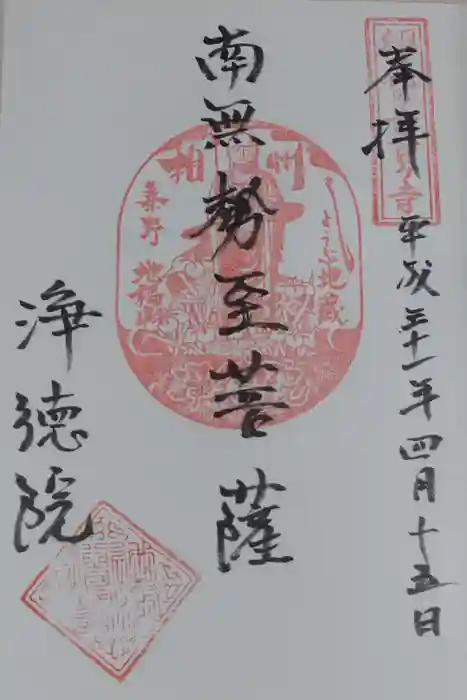 奉拝 平成三十一年四月十五日
南無勢至菩薩
浄徳院
相州
秦野
地蔵